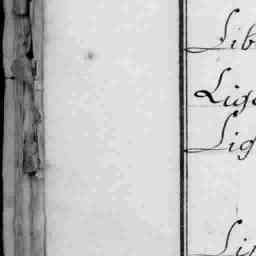 Lib
Lig
Lig
Lin